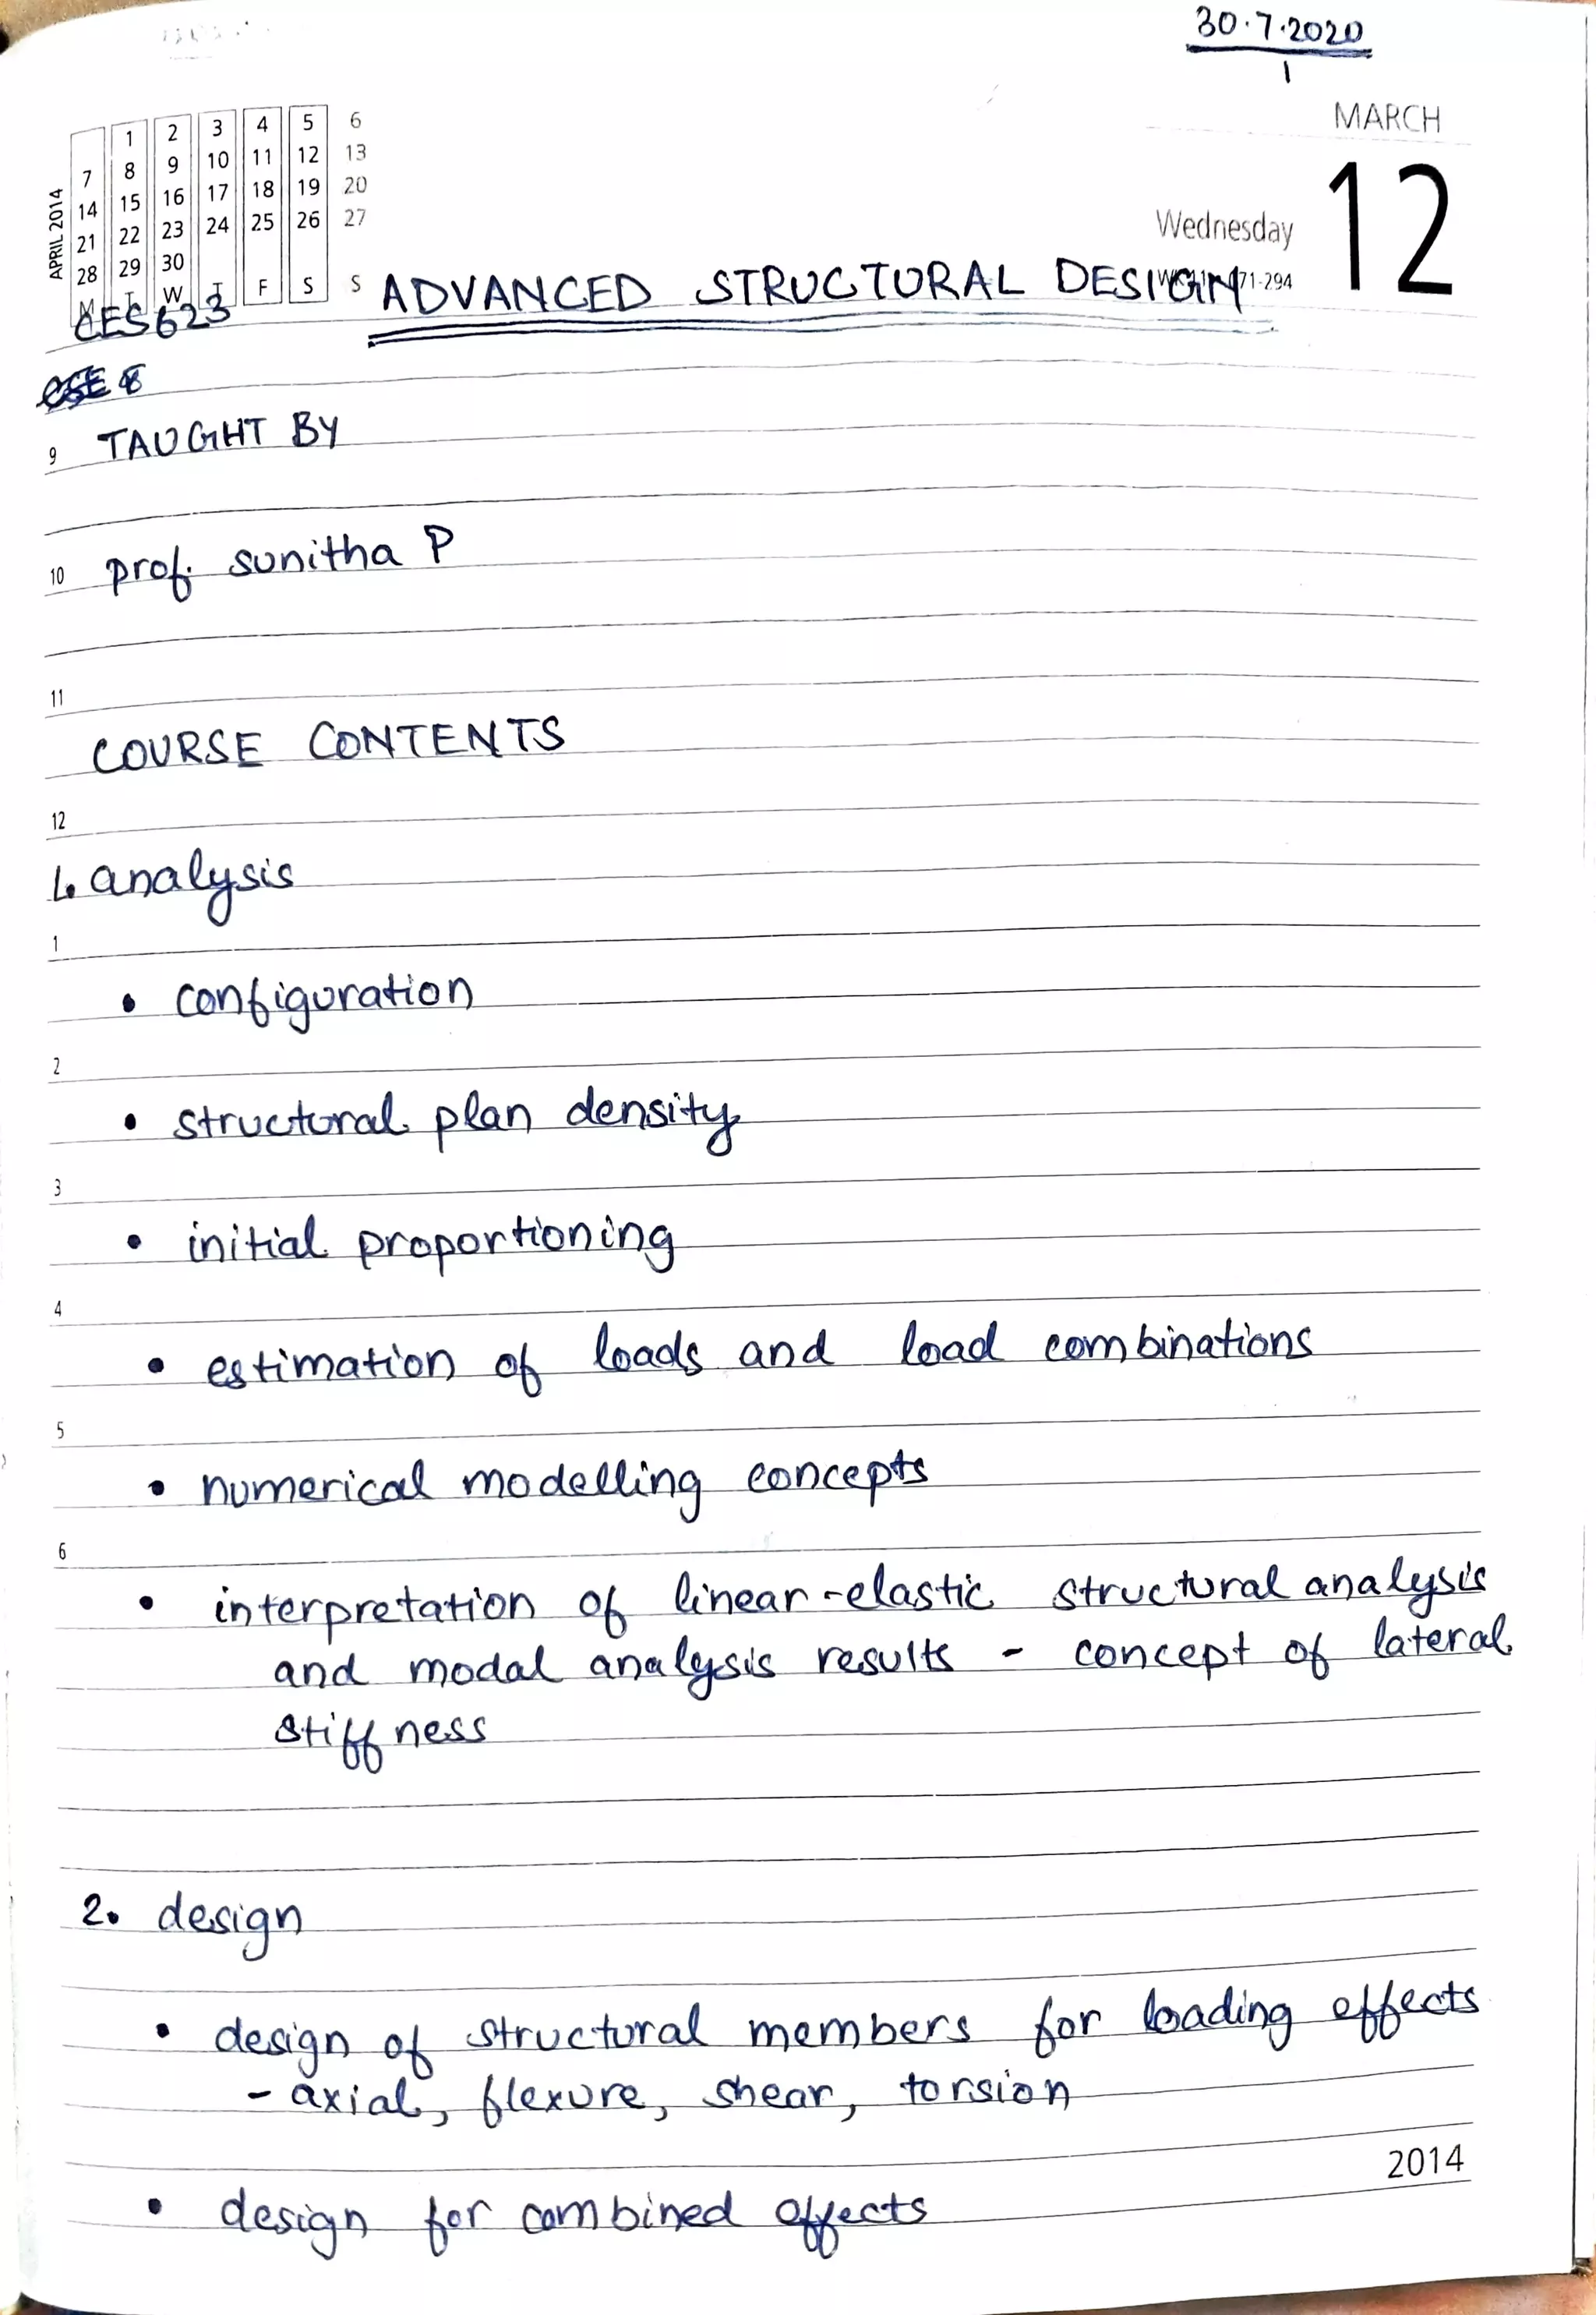 30.7.2020
1
MARCH
12
Wednesday
APRIL 2014
1 2 3 4 5 6
7 8 9 10 11 12 13
14 15 16 17 18 19 20
21 22 23 24 25 26 27
28 29 30
M T W T F S S
71-294
CES623 ADVANCED STRUCTURAL DESIGN
9 TAUGHT BY
10 prof. sunitha P
11
COURSE CONTENTS
12
1. analysis
1
• configuration
2
• structural plan density
3
• initial proportioning
4
• estimation of loads and load combinations
5
• numerical modelling concepts
6
• interpretation of linear-elastic structural analysis
and modal analysis results - concept of lateral
stiffness
2. design
• design of structural members for loading effects
- axial, flexure, shear, torsion
2014
• design for combined effects